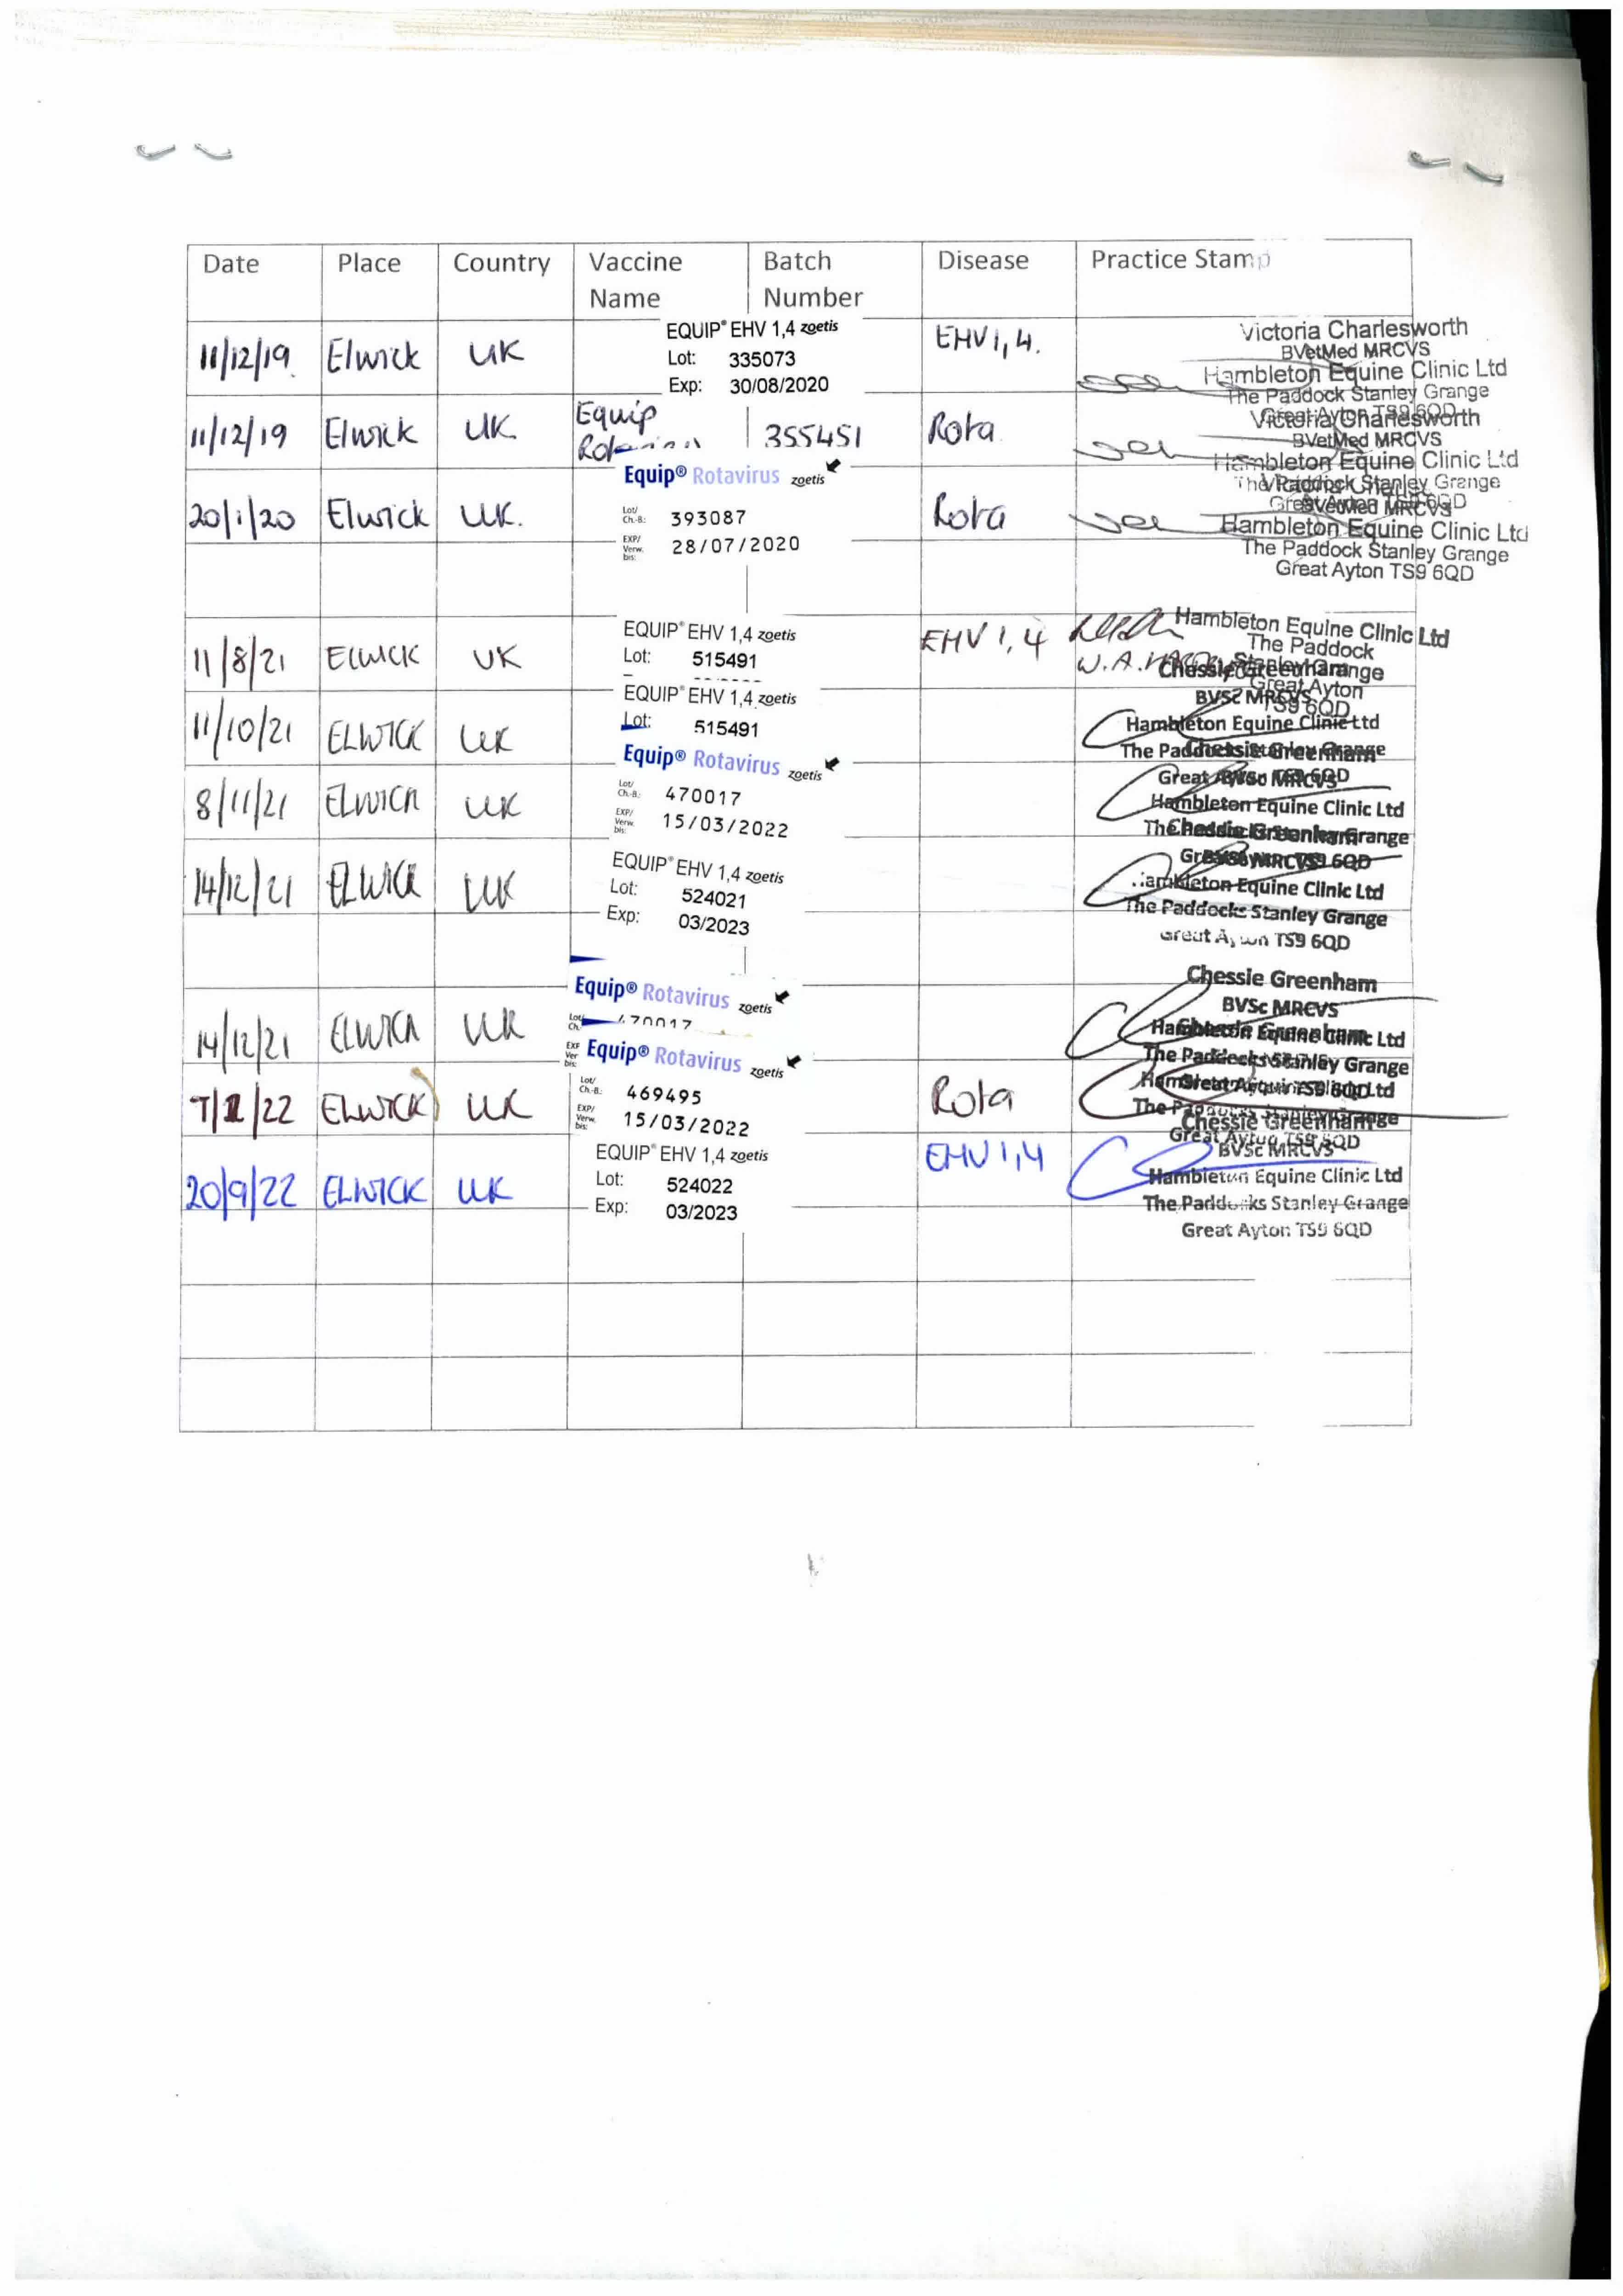 Date Place Country Vaccine Name Batch Number Disease Practice Stamp
11/12/19 Elwick UK EQUIP® EHV 1,4 zoetis EHV 1,4.
Lot: 335073
Exp: 30/08/2020
Victoria Charlesworth
BVetMed MRCVS
Hambleton Equine Clinic Ltd
The Paddock Stanley Grange
Great Ayton TS9 6QD
11/12/19 Elwick UK Equip 355451 Rota
Victoria Charlesworth
BVetMed MRCVS
Hambleton Equine Clinic Ltd
The Paddock Stanley Grange
Great Ayton TS9 6QD
Equip® Rotavirus zoetis
20/1/20 Elwick UK. Rota
Lot/ Ch.-B.: 393087
EXP/ Verw. bis: 28/07/2020
BVetMed MRCVS
Hambleton Equine Clinic Ltd
The Paddock Stanley Grange
Great Ayton TS9 6QD
11/8/21 ELWICK UK EQUIP® EHV 1,4 zoetis EHV 1,4
Lot: 515491
W.A.
Hambleton Equine Clinic Ltd
The Paddock
Stanley Grange
Great Ayton
TS9 6QD
11/10/21 ELWICK UK EQUIP® EHV 1,4 zoetis
Lot: 515491
Chessie Greenham
BVSc MRCVS
Hambleton Equine Clinic Ltd
The Paddocks Stanley Grange
Great Ayton TS9 6QD
8/11/21 ELWICK UK Equip® Rotavirus zoetis
Lot/ Ch.-B.: 470017
EXP/ Verw. bis: 15/03/2022
Chessie Greenham
BVSc MRCVS
Hambleton Equine Clinic Ltd
The Paddocks Stanley Grange
Great Ayton TS9 6QD
14/12/21 ELWICK UK EQUIP® EHV 1,4 zoetis
Lot: 524021
Exp: 03/2023
Chessie Greenham
BVSc MRCVS
Hambleton Equine Clinic Ltd
The Paddocks Stanley Grange
Great Ayton TS9 6QD
14/12/21 ELWICK UK Equip® Rotavirus zoetis
470017
Chessie Greenham
BVSc MRCVS
Hambleton Equine Clinic Ltd
The Paddocks Stanley Grange
Great Ayton TS9 6QD
7/2/22 ELWICK UK Equip® Rotavirus zoetis Rota
Lot/ Ch.-B.: 469495
EXP/ Verw. bis: 15/03/2022
Chessie Greenham
Hambleton Equine Clinic Ltd
The Paddocks Stanley Grange
Great Ayton TS9 6QD
20/9/22 ELWICK UK EQUIP® EHV 1,4 zoetis EHV 1,4
Lot: 524022
Exp: 03/2023
Chessie Greenham
BVSc MRCVS
Hambleton Equine Clinic Ltd
The Paddocks Stanley Grange
Great Ayton TS9 6QD